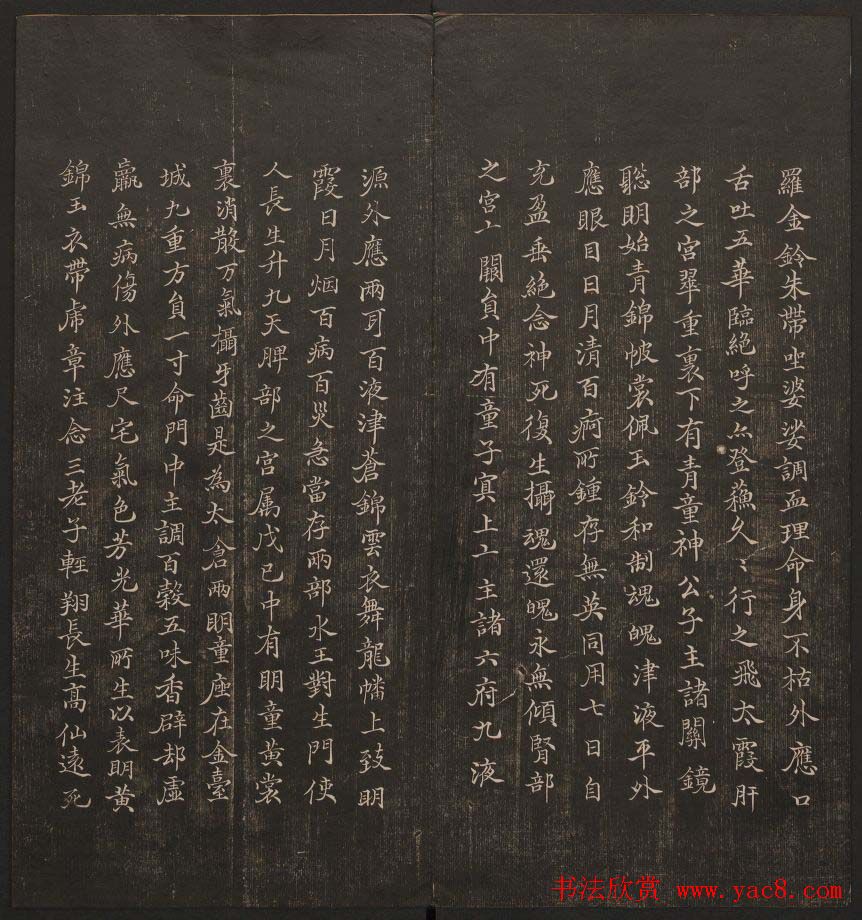 羅金鈴朱帶坐婆娑調血理命身不枯外應口
舌吐五華臨絕呼之亦登蘓久々行之飛太霞肝
部之宮翠重裏下有青童神公子主諸關鏡
聡明始青錦帔裳佩玉鈴和制魂魄津液平外
應眼目日月清百痾所鍾存無英同用七日自
充盈垂絕念神死復生攝魂還魄永無傾腎部
之宮亠闕員中有童子冥上亠主諸六府九液
源外應兩耳百液津蒼錦雲衣舞龍幡上致明
霞日月烟百病百災急當存兩部水王對生門使
人長生升九天脾部之宮属戊己中有明童黃裳
裏消散万氣攝牙齒是為太倉兩明童座在金臺
城九重方員一寸命門中主調百穀五味香辟却虛
羸無病傷外應尺宅氣色芳光華所生以表明黃
錦玉衣帶虎章注念三老子輕翔長生高仙遠死
书法欣赏 www.yac8.com